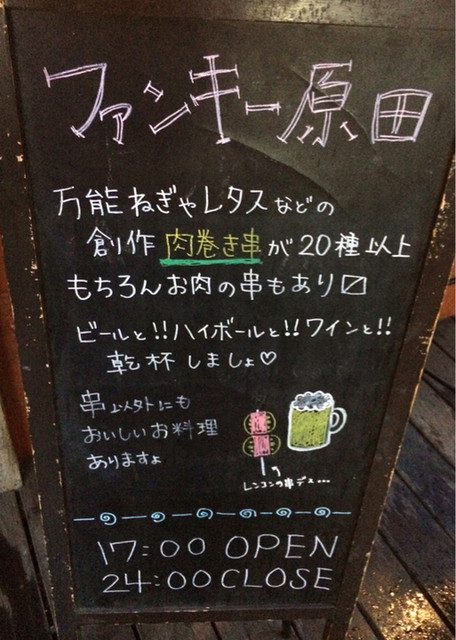 ファンキー原田
万能ねぎやレタスなどの
創作 肉巻き串が20種以上
もちろんお肉の串もあり〼
ビールと!!ハイボールと!!ワインと!!
乾杯しましょ♡
串以外にも
おいしいお料理
ありますよ
レンコンの串デス...
17:00 OPEN
24:00 CLOSE